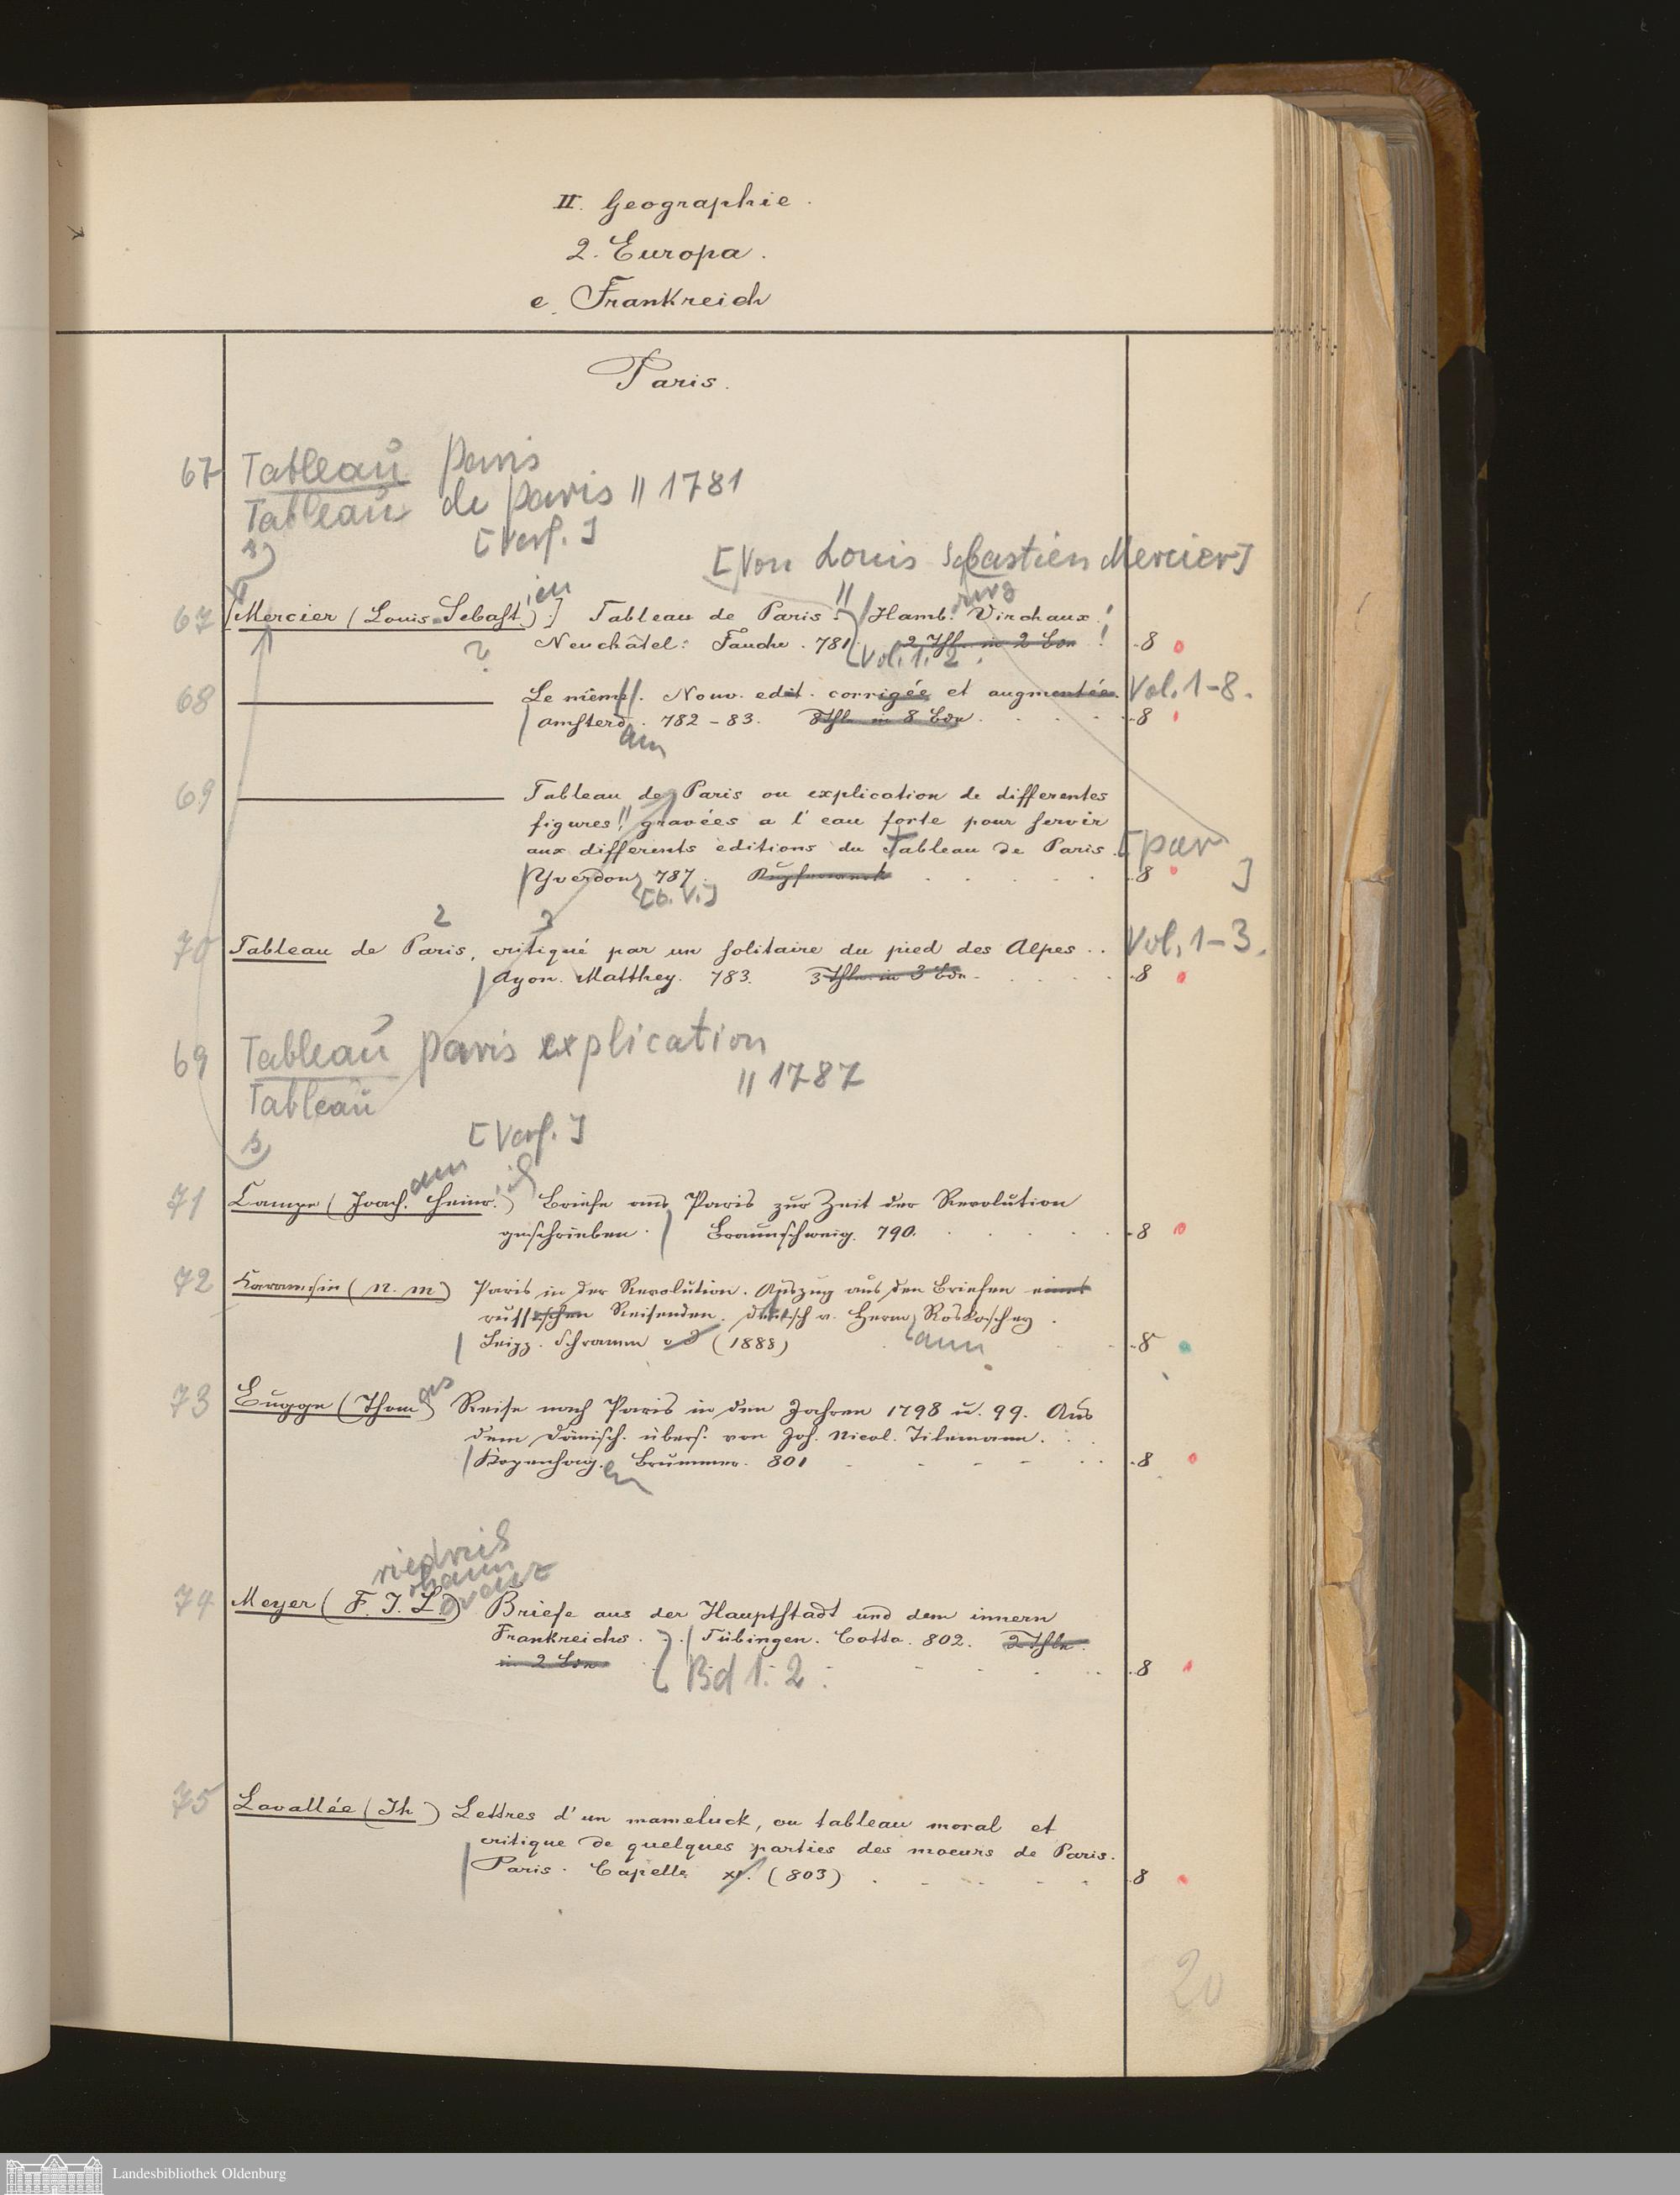 II. Geographie.
2. Europa.
e. Frankreich
Paris.
67 Tableau Paris
Tableau de Paris || 1781
[Verf.]
[Von Louis Sebastien Mercier]
67 [Mercier (Louis Sebast.ien)] Tableau de Paris!! / Hamb.urg Virchaux!
Neuchâtel: Fauche. 781. 2 Thle in 2 Bdn ! 8
Vol. 1. 2.
68 Le même. Nouv. edit. corrigée et augmentée. Vol. 1-8.
Amsterd. 782-83. 8 Thle in 8 Bdn. 8
am
69 Tableau de Paris ou explication de differentes
figures!! gravées a l'eau forte pour servir
aux differents editions du Tableau de Paris. [par
Yverdon 787. 8 ]
[o. V.]
2 3
70 Tableau de Paris, critiqué par un solitaire du pied des Alpes.. Vol. 1-3.
Nyon. Matthey. 783. 3 Thle in 3 Bdn. 8
69 Tableau Paris explication
|| 1787
Tableau
[Verf.]
71 Campe (Joach.im Heinr.ich) Briefe aus Paris zur Zeit der Revolution
geschrieben. / Braunschweig. 790. 8
72 Karamsin (N. M.) Paris in der Revolution. Auszug aus den Briefen eines
russischen Reisenden. Deutsch v. Herm Roskoschny.
Leipz. Schramm o J (1888) ann 8
73 Bugge (Thomas) Reise nach Paris in den Jahren 1798 u. 99. Aus
dem Dänisch. übers. von Joh. Nicol. Tilemann.
Kopenhag.en Brummer. 801 8
riedrich
ohann
orenz
74 Meyer (F. J. L.) Briefe aus der Hauptstadt und dem innern
Frankreichs. / Tübingen. Cotta. 802. 2 Thle.
in 2 Bdn Bd 1. 2. 8
75 Lavallée (Th) Lettres d'un mameluck, ou tableau moral et
critique de quelques parties des moeurs de Paris.
Paris. Capelle (803) 8
20
Landesbibliothek Oldenburg